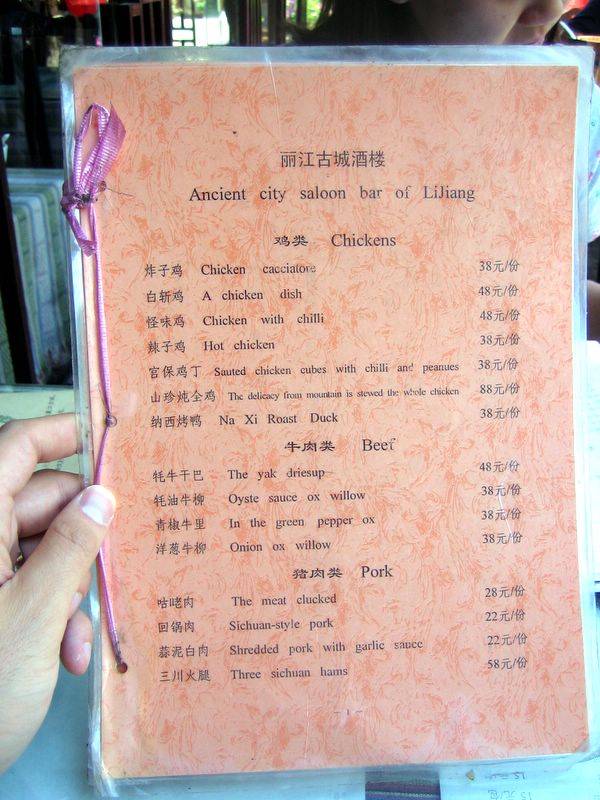 丽江古城酒楼
Ancient city saloon bar of LiJiang
鸡类 Chickens
炸子鸡 Chicken cacciatore 38元/份
白斩鸡 A chicken dish 48元/份
怪味鸡 Chicken with chilli 48元/份
辣子鸡 Hot chicken 38元/份
宫保鸡丁 Sauted chicken cubes with chilli and peanues 38元/份
山珍炖全鸡 The delicacy from mountain is stewed the whole chicken 88元/份
纳西烤鸭 Na Xi Roast Duck 38元/份
牛肉类 Beef
牦牛干巴 The yak driesup 48元/份
牦油牛柳 Oyste sauce ox willow 38元/份
青椒牛里 In the green pepper ox 38元/份
洋葱牛柳 Onion ox willow 38元/份
猪肉类 Pork
咕咾肉 The meat clucked 28元/份
回锅肉 Sichuan-style pork 22元/份
蒜泥白肉 Shredded pork with garlic sauce 22元/份
三川火腿 Three sichuan hams 58元/份
- 1 -
15元/包